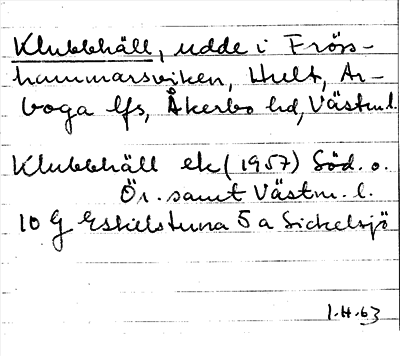 Klubbhäll, udde i Frös-
hammarsviken, Hult, Ar-
boga lfs, Åkerbo hd, Västm.l.
Klubbhäll ek (1957) Söd. o.
Ör. samt Västm. l.
10 G Eskilstuna 5 a Sickelsjö
1.H.63